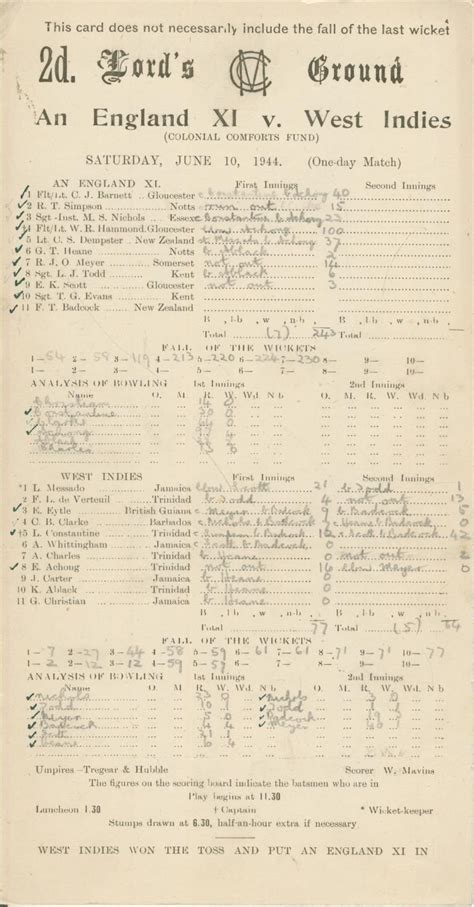 This card does not necessarily include the fall of the last wicket
2d. Lord's MCC Ground
An England XI v. West Indies
(COLONIAL COMFORTS FUND)
SATURDAY, JUNE 10, 1944. (One-day Match)
AN ENGLAND XI. First Innings Second Innings
1 Flt/Lt. C. J. Barnett .. Gloucester c Constantine b Achong 40
2 R. T. Simpson .. Notts run out 15
3 Sgt-Inst. M. S. Nichols .. Essex c Constantine b Achong 23
4 Flt/Lt. W. R. Hammond. Gloucester lbw Achong 100
5 Lt. C. S. Dempster .. New Zealand b Achong 37
6 G. T. Heane .. Notts b Ablack 2
7 R. J. O Meyer .. Somerset not out 14
8 Sgt. L. J. Todd .. Kent b Ablack 6
9 E. K. Scott .. Gloucester not out 3
10 Sgt. T. G. Evans .. Kent
11 F. T. Badcock .. New Zealand
B , l-b , w , n-b , B , l-b , w , n-b ,
Total (7) 243 Total
FALL OF THE WICKETS
1—54 2—58 3—119 4—213 5—220 6—224 7—230 8— 9— 10—
1— 2— 3— 4— 5— 6— 7— 8— 9— 10—
ANALYSIS OF BOWLING 1st Innings 2nd Innings
Name O. M. R. W. Wd. N b O. M. R. W. Wd. N b
Christian 14 0
Constantine
Clarke
Achong
Charles
WEST INDIES First Innings Second Innings
*1 L. Messado .. Jamaica lbw Scott 21 b Todd 1
2 F. L. de Verteuil .. Trinidad b Todd 4 not out 13
3 E. Eytle .. British Guiana c Meyer b Badcock 9 b Badcock 5
4 C. B. Clarke .. Barbados c Nichols b Badcock c Heane b Badcock 0
†5 L. Constantine .. Trinidad c Simpson b Badcock 12 c Scott b Badcock 42
6 A. Whittingham .. Jamaica c Scott b Badcock 0
7 A. Charles .. Trinidad b Heane 0 not out 2
8 E. Achong .. Trinidad not out 16 lbw Meyer 0
9 J. Carter .. Jamaica b Heane 0
10 K. Ablack .. Trinidad b Heane 0
11 G. Christian .. Jamaica b Heane 0
B , l-b , w , n-b , B , l-b , w , n-b ,
Total 77 Total (5) 84
FALL OF THE WICKETS
1—7 2—27 3—44 4—58 5—59 6—61 7—61 8— 9— 10—77
1—2 2—12 3—12 4—59 5— 6— 7— 8— 9— 10—
ANALYSIS OF BOWLING 1st Innings 2nd Innings
Name O. M. R. W. Wd. N b O. M. R. W. Wd. N b
Nichols 23 0 Nichols 3 0
Todd 10 1 Todd 1
Meyer 0 Badcock 19 3
Badcock 4 Meyer
Scott 21 1
Heane 6 4
Umpires—Tregear & Hubble Scorer W. Mavins
The figures on the scoring board indicate the batsmen who are in
Play begins at 11.30
Luncheon 1.30 † Captain * Wicket-keeper
Stumps drawn at 6.30, half-an-hour extra if necessary
WEST INDIES WON THE TOSS AND PUT AN ENGLAND XI IN